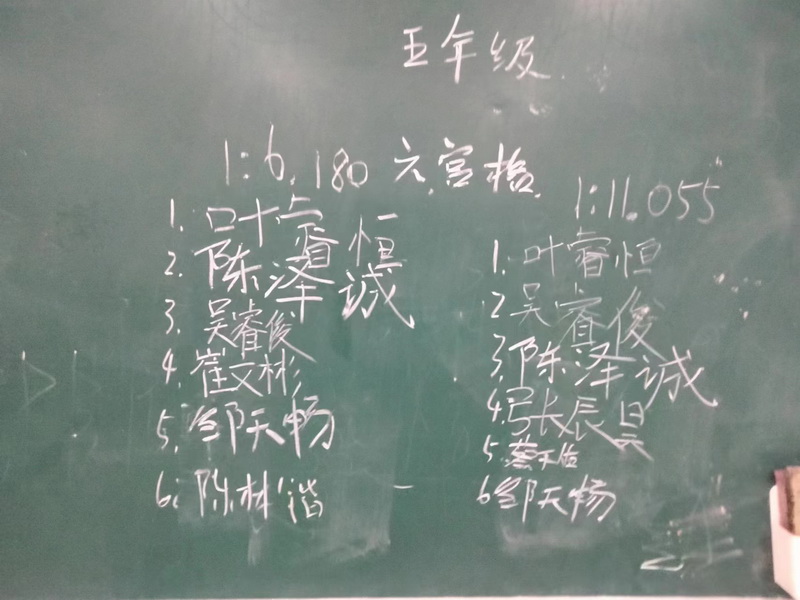 五年级
1:6.180 六宫格
1:11.055"
1. 叶睿恒
2. 陈泽诚
3. 吴睿俊
4. 崔文彬
5. 邹天畅
6. 陈林谐
1. 叶睿恒
2 吴睿俊
3. 陈泽诚
4. 张辰昊
5. 蔡天佑
6 邹天畅